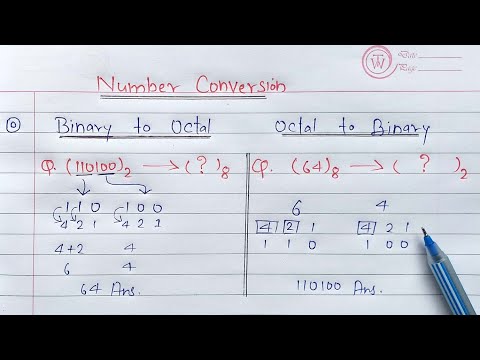 TW
Date
Page
Number Conversion
Binary to Octal
Q. (110100)₂ → (?)₈
1 1 0 1 0 0
4 2 1 4 2 1
4+2 4
6 4
64 Ans.
Octal to Binary
Q. (64)₈ → ( ? )₂
6 4
4 2 1 4 2 1
1 1 0 1 0 0
110100 Ans.